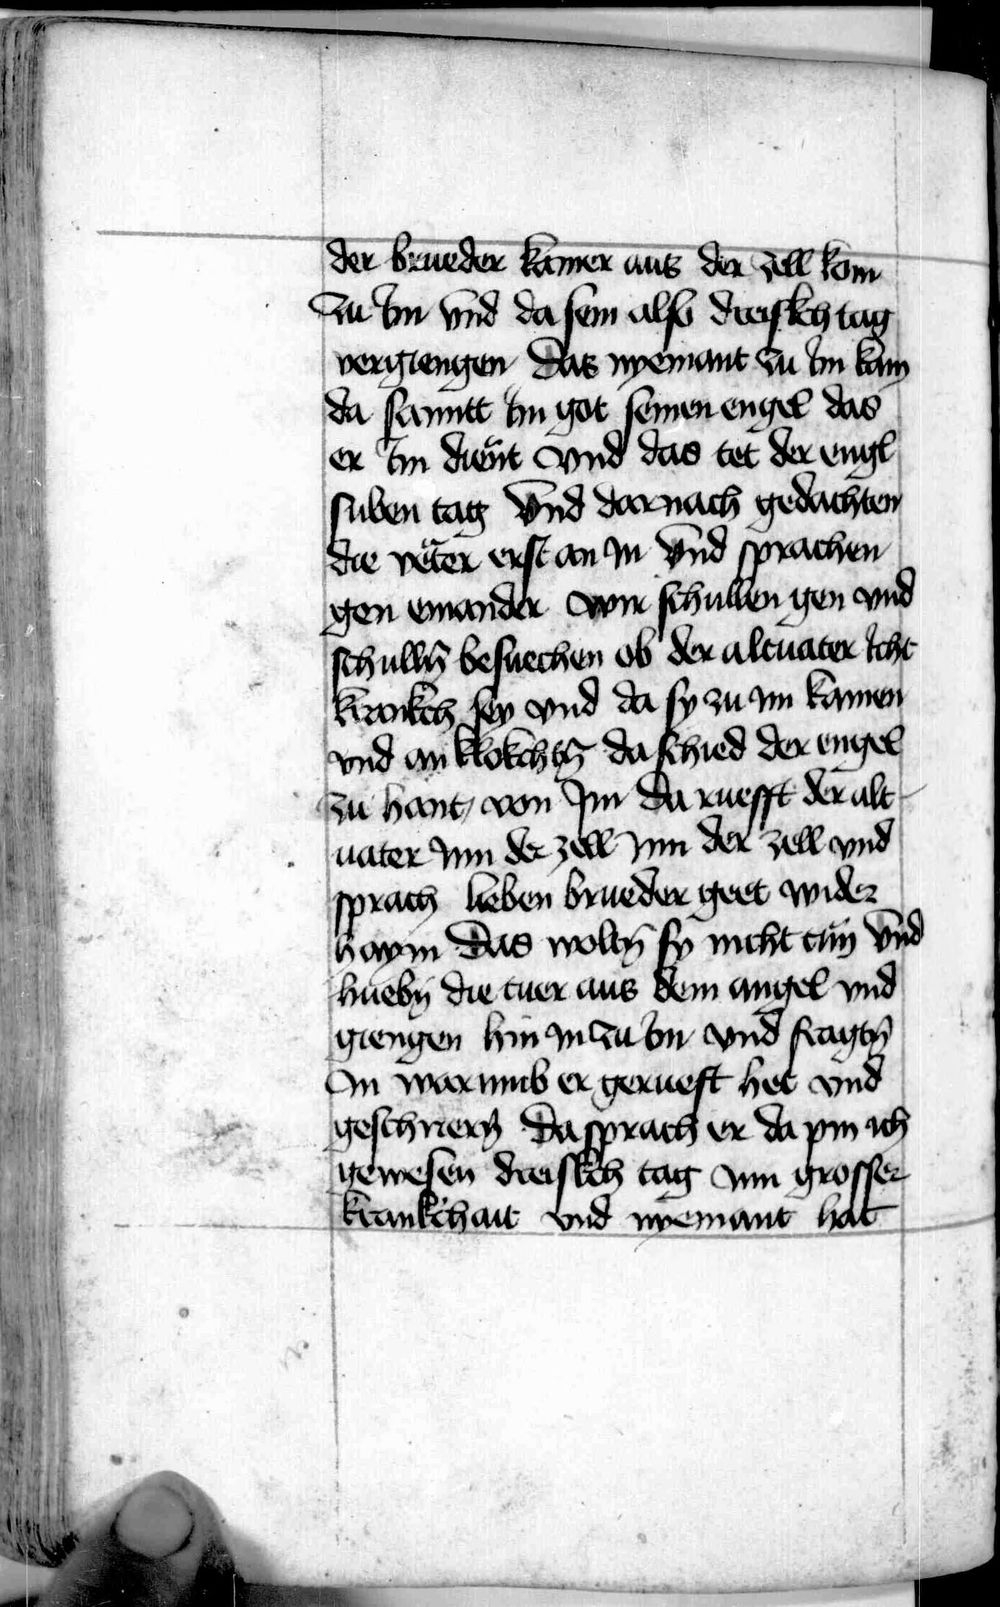 der brueder kamer aus der zell kom
zu im vnd da sein also dreiskch tag
vergiengen Das nyemant zu im kam
da sanntt im got seinen engel das
er im dient vnd das tet der engl
siben tag Vnd darnach gedachten
die veter erst an in Vnd sprachen
gen einander wir schullen gen vnd
schulln besuechen ob der altuater icht
krankch sey vnd da sy zu im kamen
vnd an klokchtn da schied der engel
zu hant von Im Da ruefft der alt
uater inn der zell inn der zell vnd
sprach lieben brueder geet wider
haym Das woltn sy nicht tun Vnd
huebn die tuer aus dem angel vnd
giengen hin in zu im vnd fragtn
in warumb er gerueft het vnd
geschriern Da sprach er da pin ich
gewesen dreiskch tag inn grosser
krankchait vnd nyemant hat